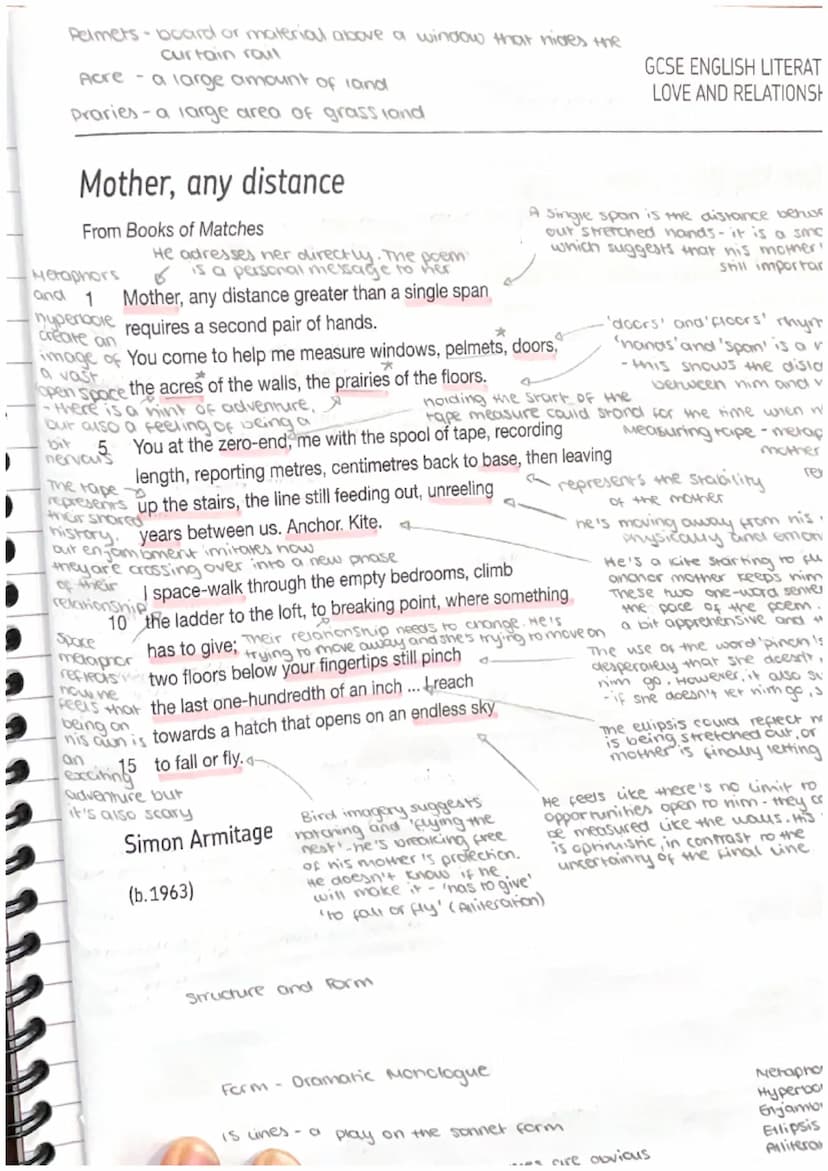 Pelmets - board or material above a window that hides the
curtain rail
Acre - a large amount of land
Praries - a large area of grassland
GCSE ENGLISH LITERAT
LOVE AND RELATIONSH
Mother, any distance
From Books of Matches
A single span is the distance betwe
out stretched hands - it is a sma
which suggests that his mother'
still importan
He adresses her directly. The poem
is a personal message to her
Metaphors
and
hyperbole
create an
image of
a vast
open space
- there is a hint of adventure,
but also a feeling of being a
bit
nervous
1 Mother, any distance greater than a single span
requires a second pair of hands.
You come to help me measure windows, pelmets, doors,
the acres of the walls, the prairies of the floors.
'doors' and 'floors' rhym
'hands' and 'span' is a
- this shows the dist
between him and
holding the start of the
tape measure could stand for the time when
Measuring tape - metap
mother
5 You at the zero-end, me with the spool of tape, recording
length, reporting metres, centimetres back to base, then leaving
up the stairs, the line still feeding out, unreeling
years between us. Anchor. Kite.
represents the stability
of the mother
The tape
represents
their shared
history,
but enjambment imitates how
they are crossing over into a new phase
of their
relationship
he's moving away from his
physically and emon
He's a kite starting to fl
anchor mother keeps him
These two one-word senten
the pace of the poem.
a bit apprehensive and
I space-walk through the empty bedrooms, climb
10 the ladder to the loft, to breaking point, where something
has to give;
Their relationship needs to change. He's
trying to move away and she's trying to move on
two floors below your fingertips still pinch
the last one-hundredth of an inch ... I reach
towards a hatch that opens on an endless sky
15 to fall or fly.
Space
metaphor
reflects
how he
feels that
being on
his own is
an
exciting
adventure but
it's also scary
The use of the word 'pinch'
desperately that she doesn't
him go. However, it also su
- if she doesn't let him go, s
The ellipsis could reflect
is being stretched out, or
mother is finally letting
Bird imagery suggests
hatching and 'flying the
nest' - he's breaking free
of his mother's protection.
He doesn't know if he
will make it - 'has to give'
'to fall or fly' (Alliteration)
He feels like there's no limit to
opportunities open to him - they ca
be measured like the walls. His
is optimistic, in contrast to the
uncertainty of the final line
Simon Armitage
(b.1963)
Structure and Form
Form - Dramatic Monologue
15 Lines - a play on the sonnet form
are obvious
Metapho
Hyperbo
Enjamb
Ellipsis
Allitera